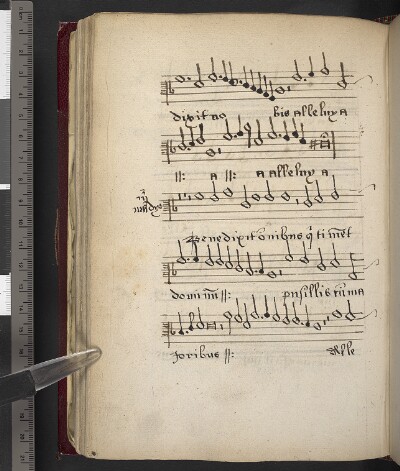 dixit no bis alleluy a
||: a ||: a alleluy a
Benedixit omibus q timet
dominū ||: pusillis cū ma
Joribus ||: Alle